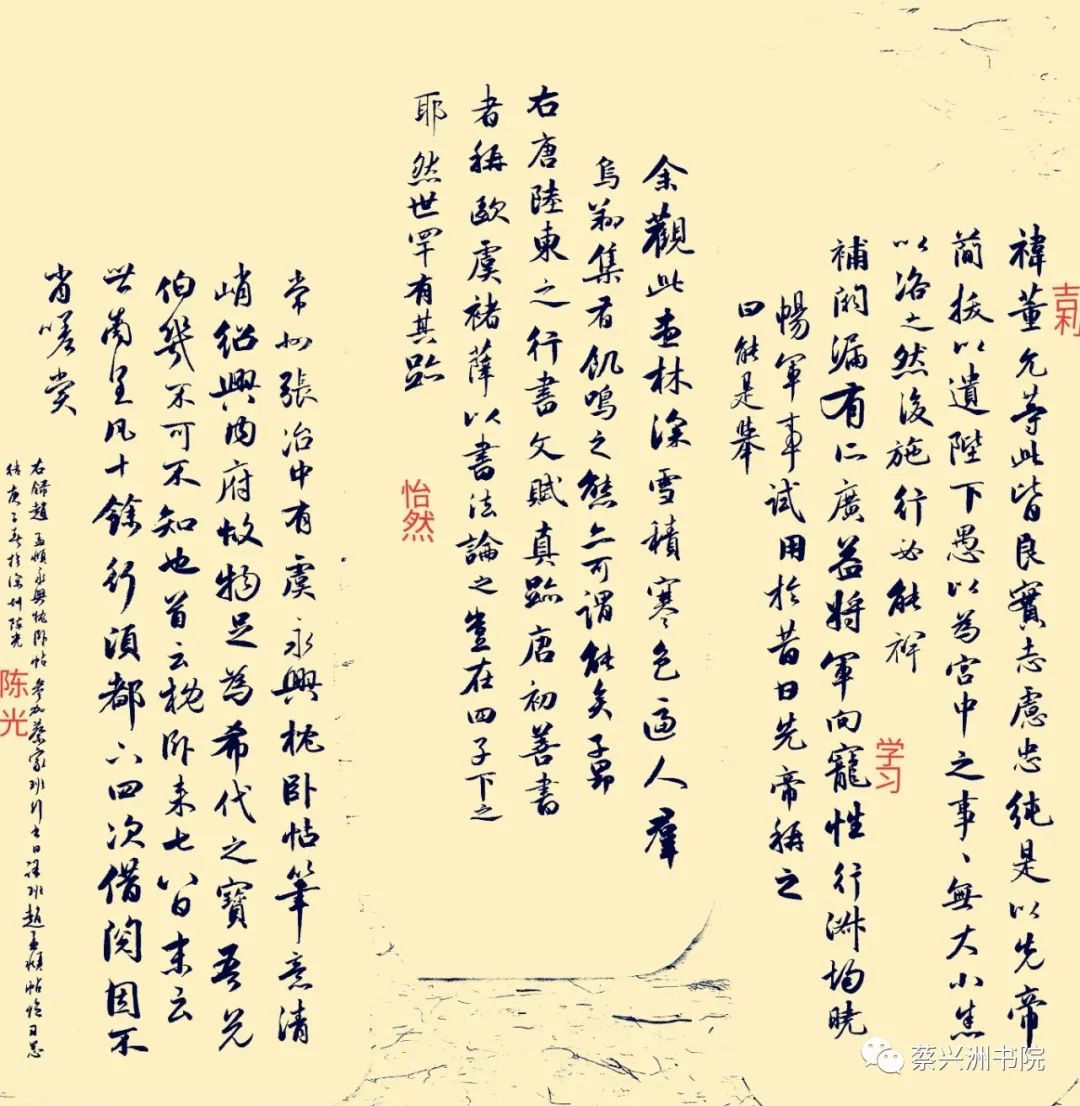 吉利
禕董允等此皆良實志慮忠純是以先帝
簡拔以遺陛下愚以為宮中之事、無大小悉
以咨之然後施行必能裨
補闕漏有所廣益將軍向寵性行淑均曉
暢軍事試用於昔日先帝稱之
曰能是舉
学习
余觀此畫林深雪積寒色逼人群
烏翔集有飢鳴之態亦可謂能矣子昂
右唐陸東之行書文賦真跡唐初善書
者稱歐虞褚薛以書法論之豈在四子下之
耶然世罕有其跡
怡然
常州張治中有虞永興枕卧帖筆意清
峭紹興內府故物足為希代之寶吾兄
伯幾不可不知也首云枕卧來七八日末云
世南呈凡十餘行須都六四次借閱因不
肯嗟赏
右歸趙孟頫永興枕卧帖參加蔡家班行書日課班趙孟頫帖
庚子春於深圳陈光
陈光
蔡兴洲书院